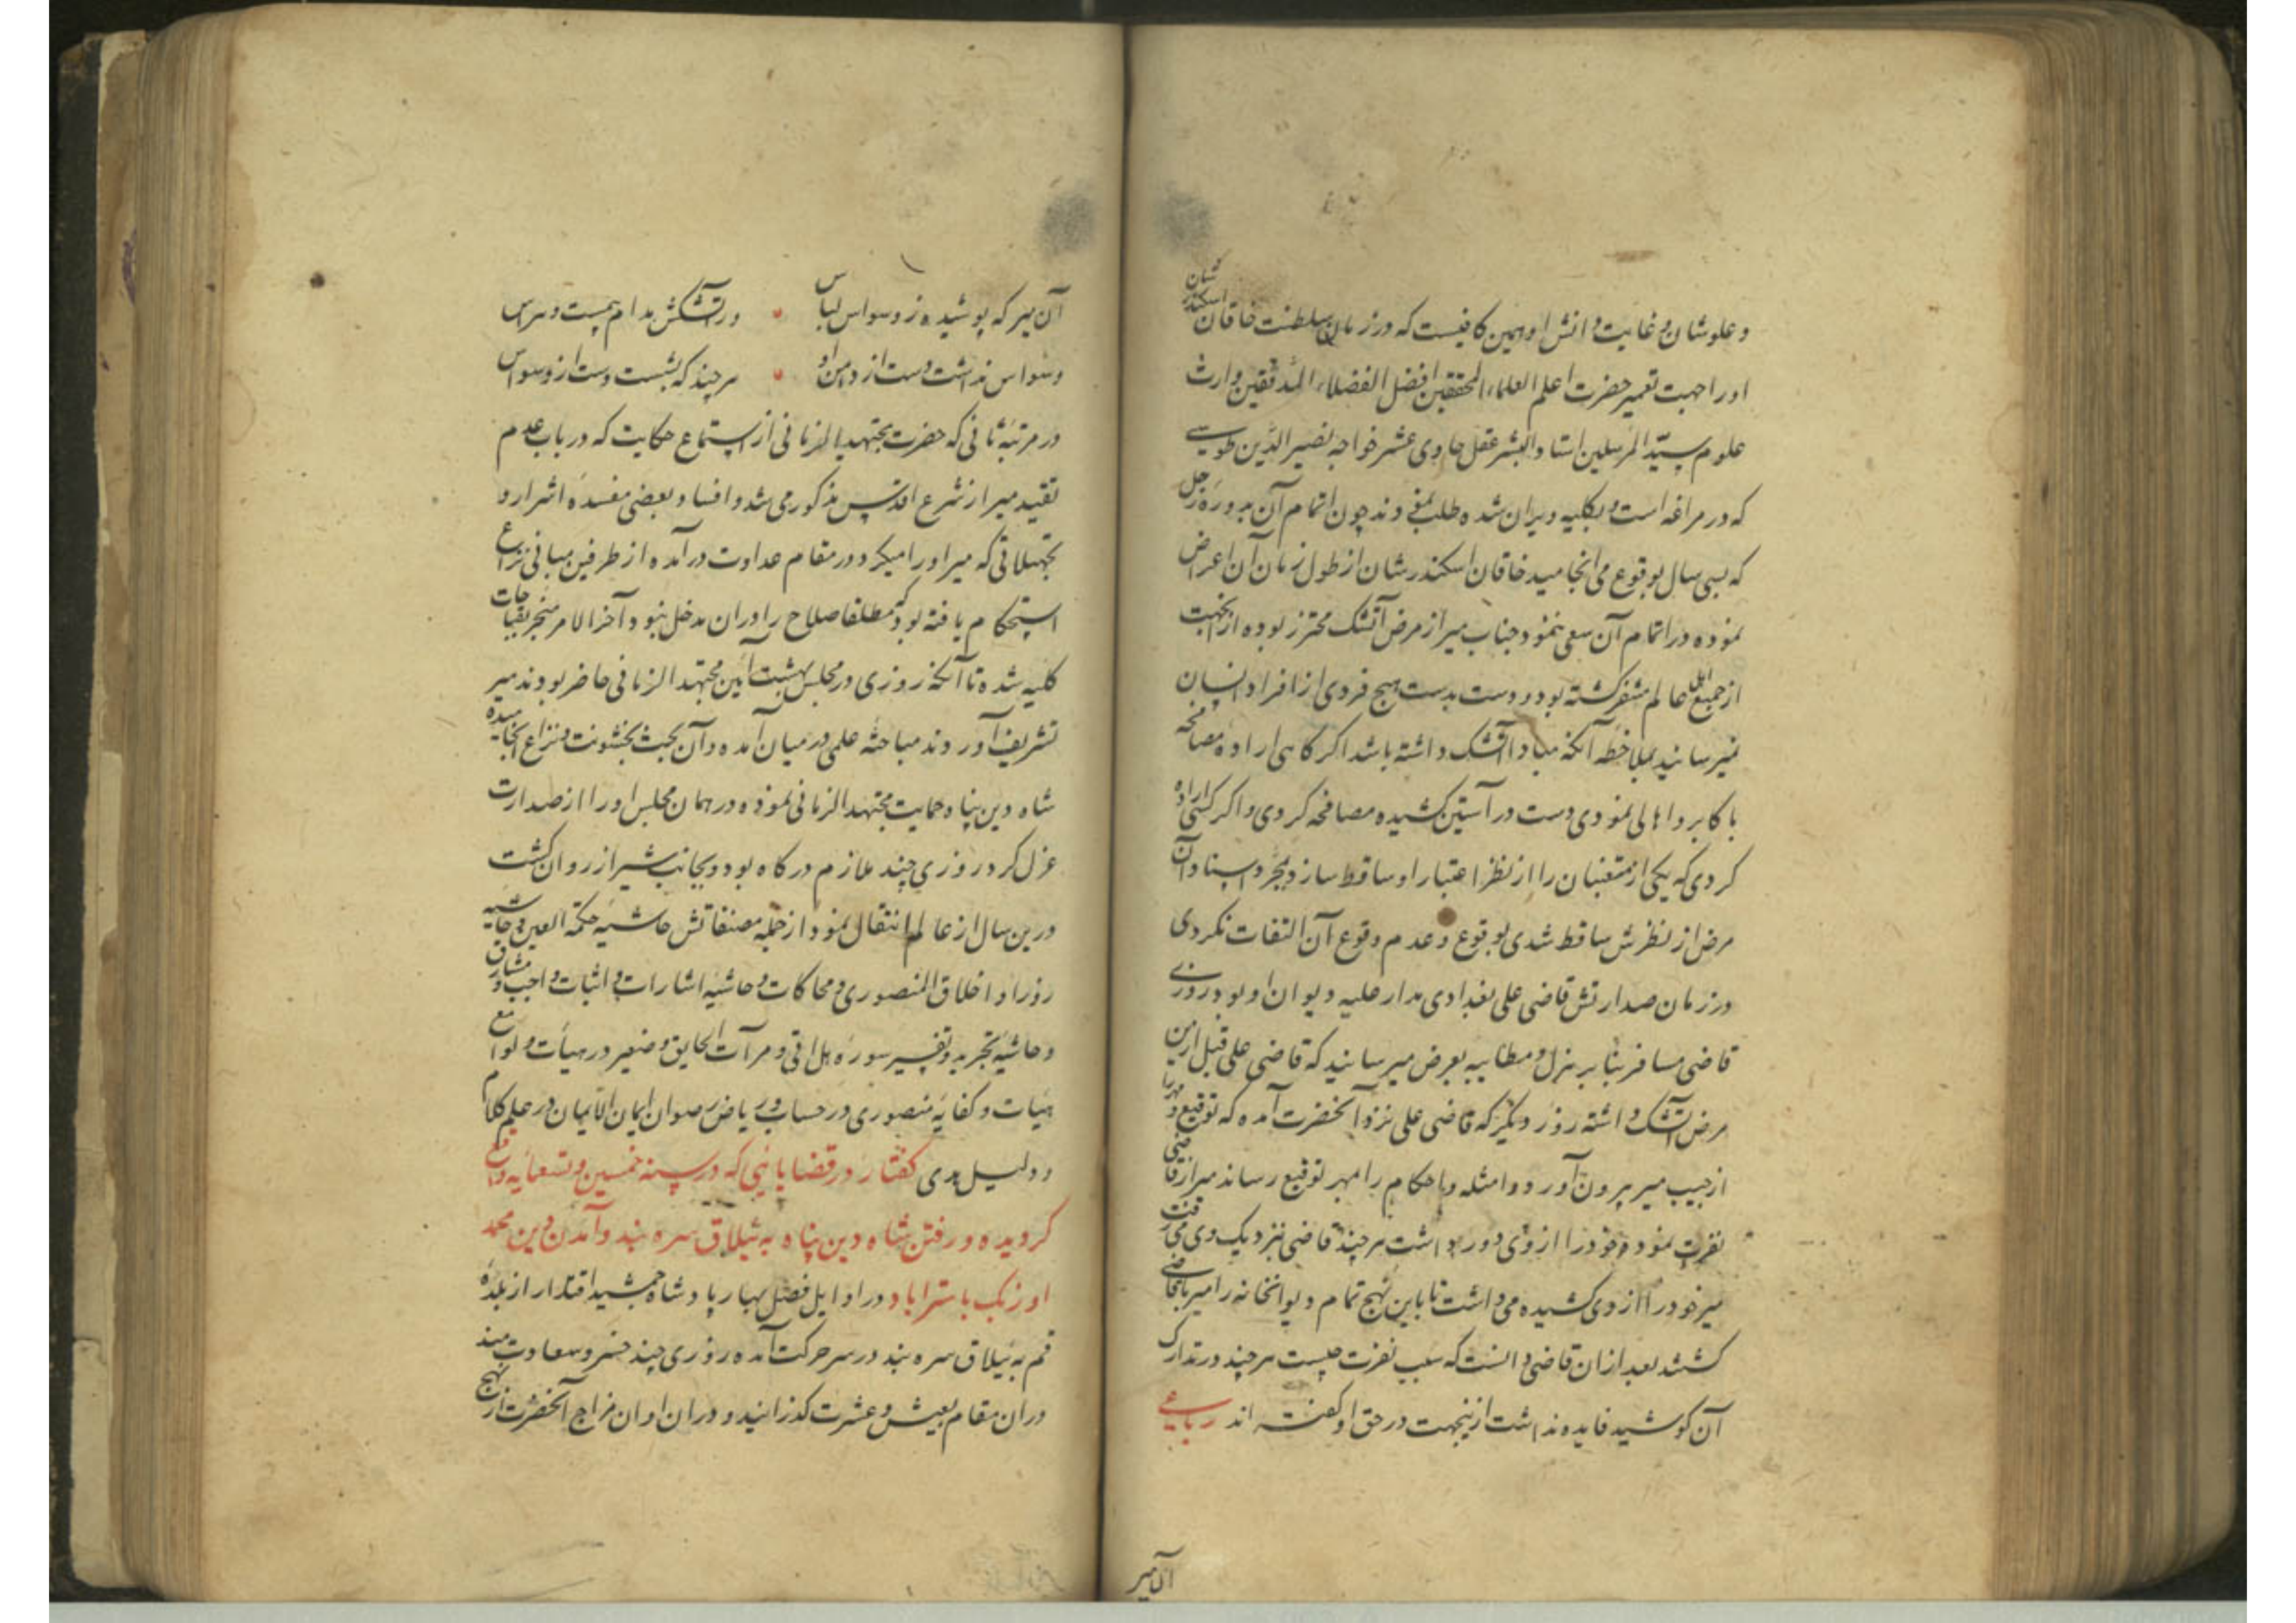 و علو شان و غایت دانش او همین کافیست که در زمان سلطنت خاقان اسکندر شان
او را جهت تعمیر حضرت اعلم العلماء المحققین افضل الفضلاء المدققین وارث
علوم سید المرسلین استاد البشر عقل حادی عشر خواجه نصیر الدین طوسی
که در مراغه است و بکلیه ویران شده طلب نمودند چون اتمام آن بدوره زحل
که بسی سال بوقوع می انجامید خاقان اسکندر شان از طول زمان آن اعراض
نموده در اتمام آن سعی ننمود و جناب میر از مرض آتشک محترز بوده ازینجهت
از جمیع اهل عالم متنفر گشته بود و دست بدست هیچ فردی از افراد انسان
نمیرسانید بملاحظه آنکه مبادا آتشک داشته باشد اگر گاهی اراده مصافحه
با کابر و اهالی نمودی دست در آستین کشیده مصافحه کردی و اگر کسی اراده
کردی که یکی از متعینان را از نظر اعتبار او ساقط سازد بمجرد اسناد آن
مرض از نظرش ساقط شدی بوقوع و عدم وقوع آن التفات نکردی
در زمان صدارتش قاضی علی بغدادی مدار علیه دیوان او بود روزی
قاضی مسافر بنا بر هزل و مطایبه بعرض میرسانید که قاضی علی قبل ازین
مرض آتشک داشته روز دیگر که قاضی علی نزد آنحضرت آمده که توقیع و مهر را
از جیب میر بیرون آورد و امثله و احکام را مهر توقیع رساند میر از قاضی
نفرت نمود و خود را از وی دور داشت هر چند قاضی نزدیک وی می رفت
میر خود را از وی کشیده می داشت تا باین نهج تمام دیوانخانه را
گشتند بعد ازان قاضی دانست که سبب نفرت چیست هر چند در تدارک
آن کوشید فایده نداشت ازینجهت در حق او گفته اند رباعی
آن میر
آن میر که پوشیده ز وسواس لباس ور آتشکش مدام بیمست و هراس
وسواس نداشت دست از دامن او هر چند که بشست دست از وسواس
در مرتبه ثانی که حضرت مجتهد الزمانی از استماع حکایت که در باب عدم
تقید میر از شرع اقدس مذکور می شد و افساد بعضی مفسده اشرار و
تجهیلاتی که میر او را میکرد در مقام عداوت درآمده از طرفین مبانی نزاع
استحکام یافته بود که مطلقا صلاح را دران مدخل نبود و آخر الامر منجر بقباحات
کلیه شده تا آنکه روزی در مجلس بهشت آیین مجتهد الزمانی حاضر بودند میر
تشریف آوردند مباحثه علمی در میان آمده و آن بحث بخشونت و نزاع انجامیده
شاه دین پناه حمایت مجتهد الزمانی نموده در همان مجلس او را از صدارت
عزل کرد روزی چند ملازم درگاه بود و بجانب شیراز روان گشت
درین سال از عالم انتقال نمود از جمله مصنفاتش حاشیه حکمة العین و حاشیه
زورا و اخلاق المنصوری و محاکات و حاشیه اشارات و اثبات واجب و مشارق
و حاشیه تجرید و تفسیر سوره هل اتی و مرآت الحقایق و صغیر در هیأت و لوامع
هیأت و کفایه منصوری در حساب و ریاض رضوان ایمان الایمان در علم کلام
و دلیل هدی گفتار در قضایائی که در سنه خمسین و تسعمایه واقع
گردیده و رفتن شاه دین پناه به ییلاق سره بند و آمدن دین محمد
اوزبک باستراباد در اوایل فصل بهار پادشاه جمشید اقتدار از بلده
قم به ییلاق سره بند در سر حرکت آمده روزی چند خسرو سعادت مند
دران مقام بعیش و عشرت گذرانید و دران اوان مزاج آنحضرت از نهج